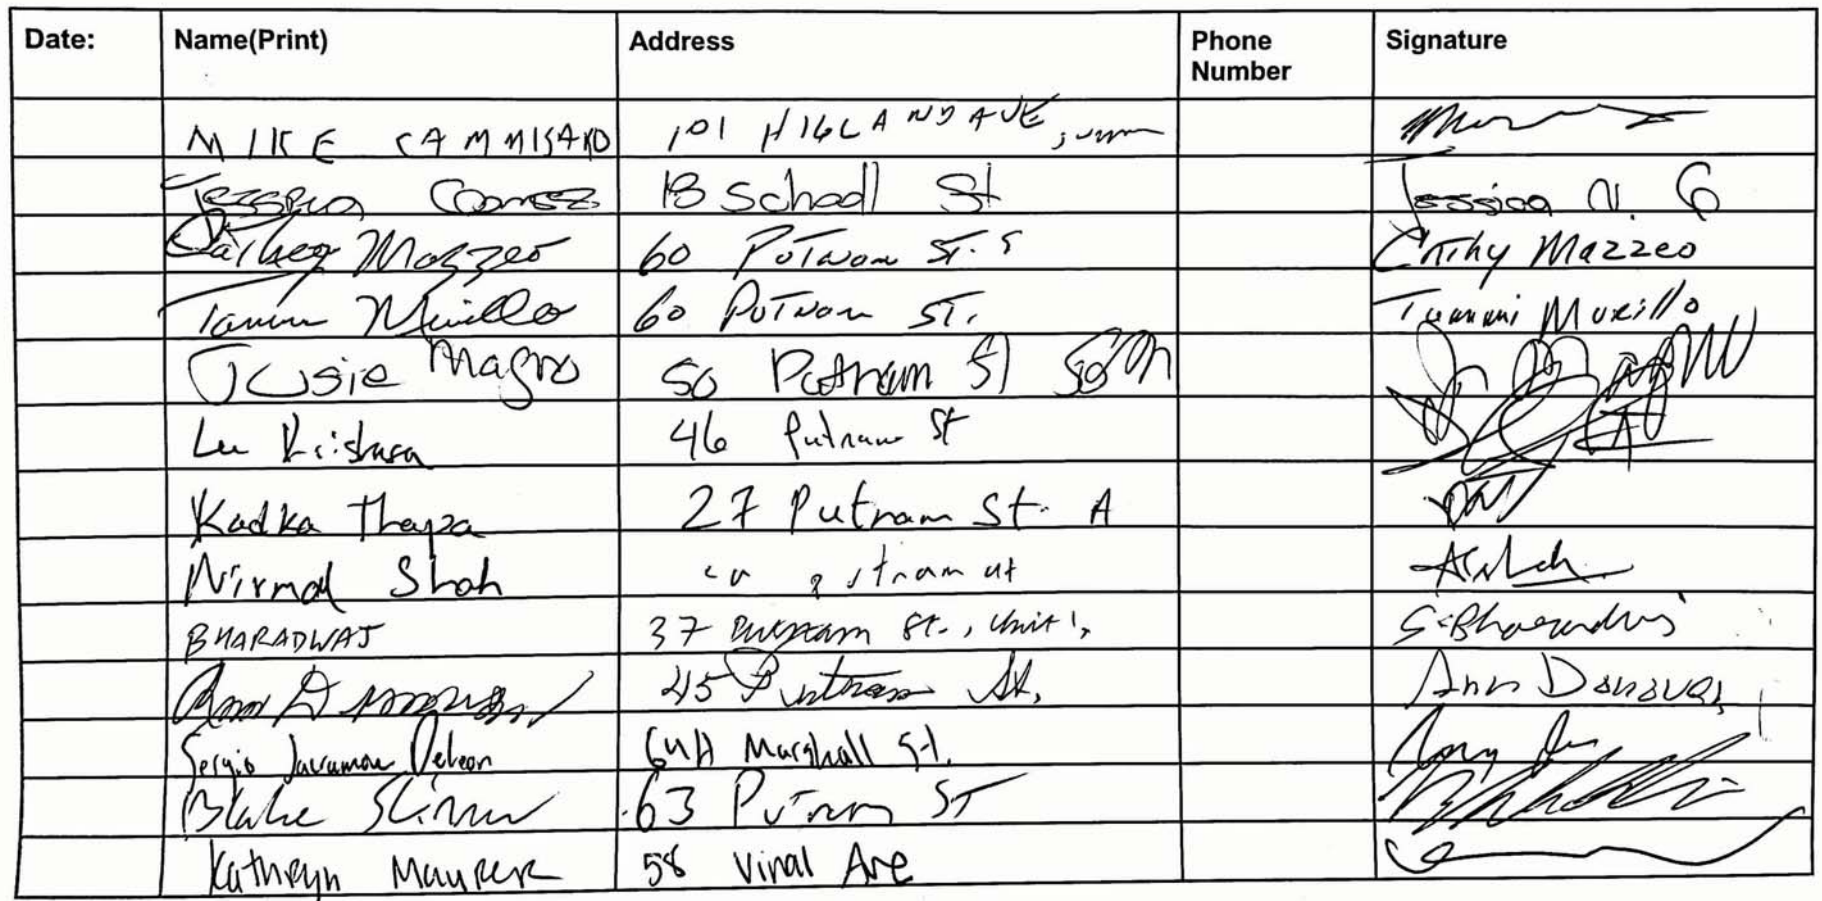 Date: Name(Print) Address Phone Number Signature
MIKE CAMMISARO 101 HIGLAND AVE,
Jessica Gomez 18 School St Jessica N. G
Cathy Mazzeo 60 Putnam ST. Cathy Mazzeo
Tammi Murillo 60 Putnam ST. Tammi Murillo
Jusie Magro 50 Putnam St
Lee Krishna 46 Putnam St
Kadka Thapa 27 Putnam St. A
Nirmal Shah
BHARADWAJ 37 Putnam St., Unit 1, S. Bharadwaj
Ann Donovan 45 Putnam St. Ann Donovan
Sergio Deleon 64A Marshall St.
Blake Skinner 63 Putnam ST
Kathryn Maurer 58 Vinal Ave